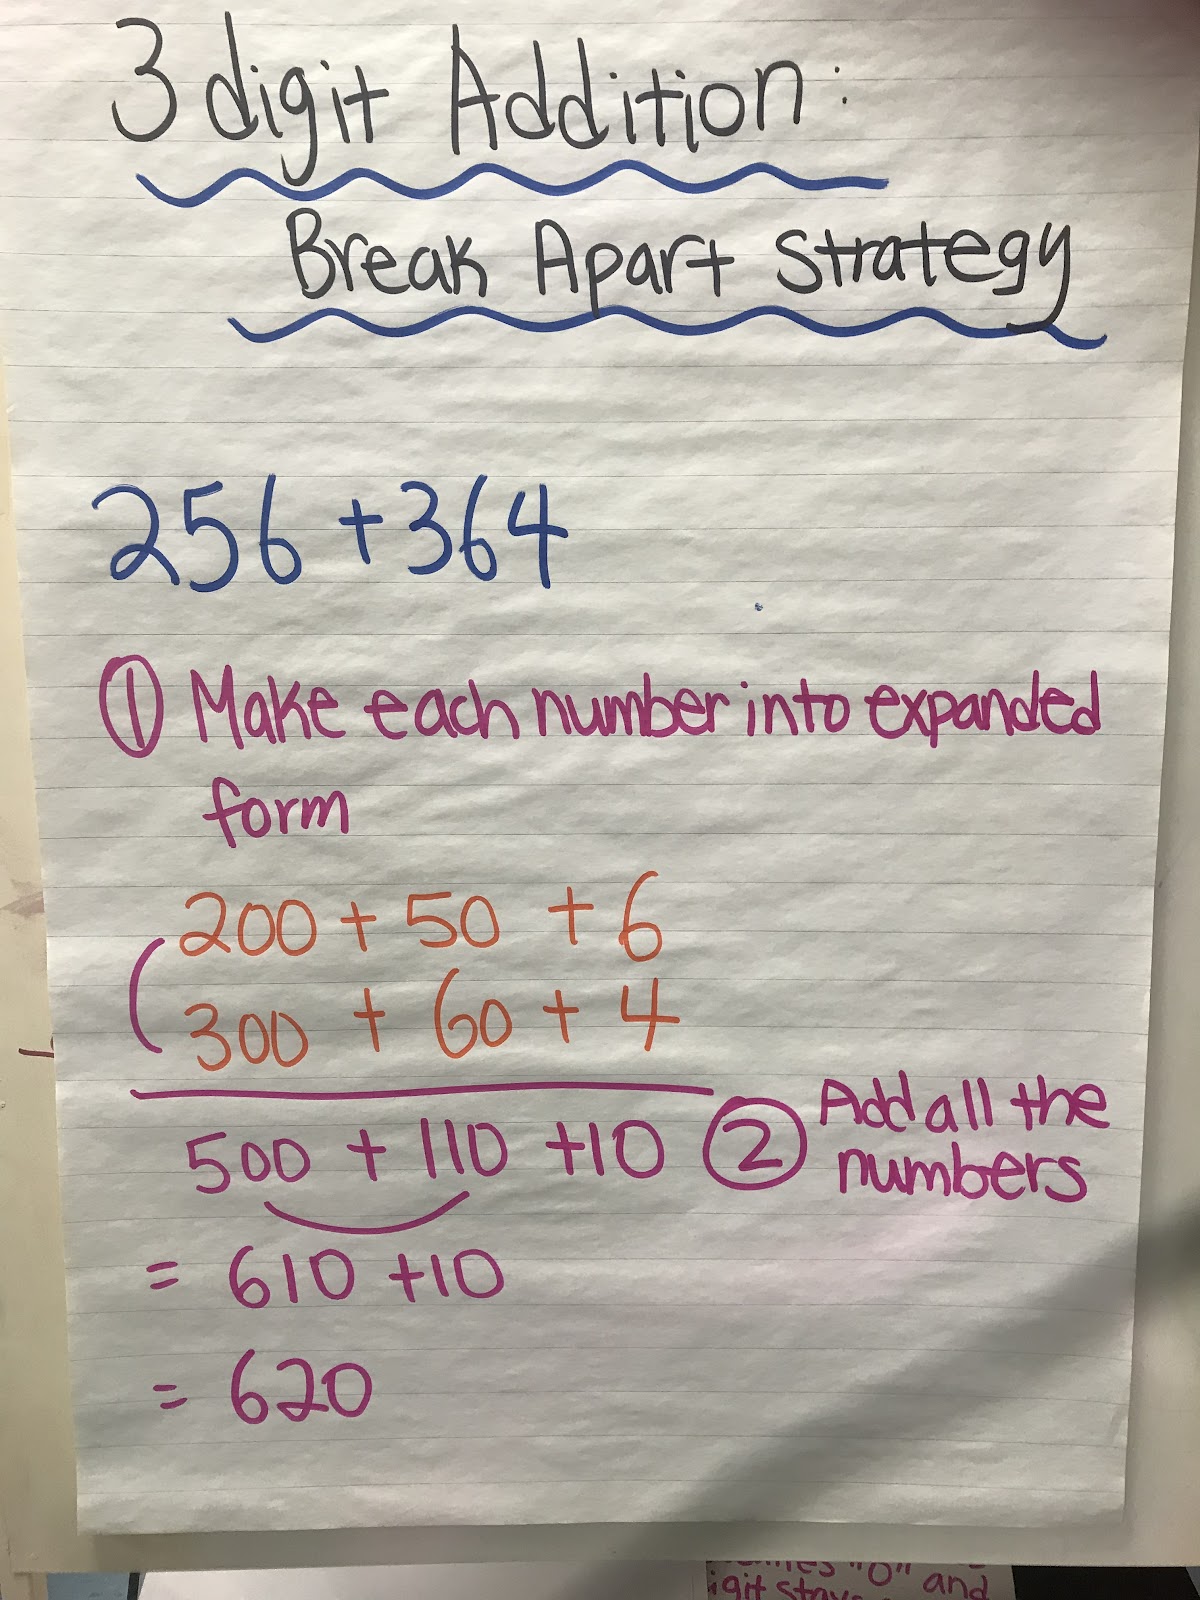 3 digit Addition:
Break Apart Strategy
256 + 364
① Make each number into expanded
form
200 + 50 + 6
300 + 60 + 4
500 + 110 + 10 ② Add all the
numbers
= 610 + 10
= 620
"0" and
digit stays